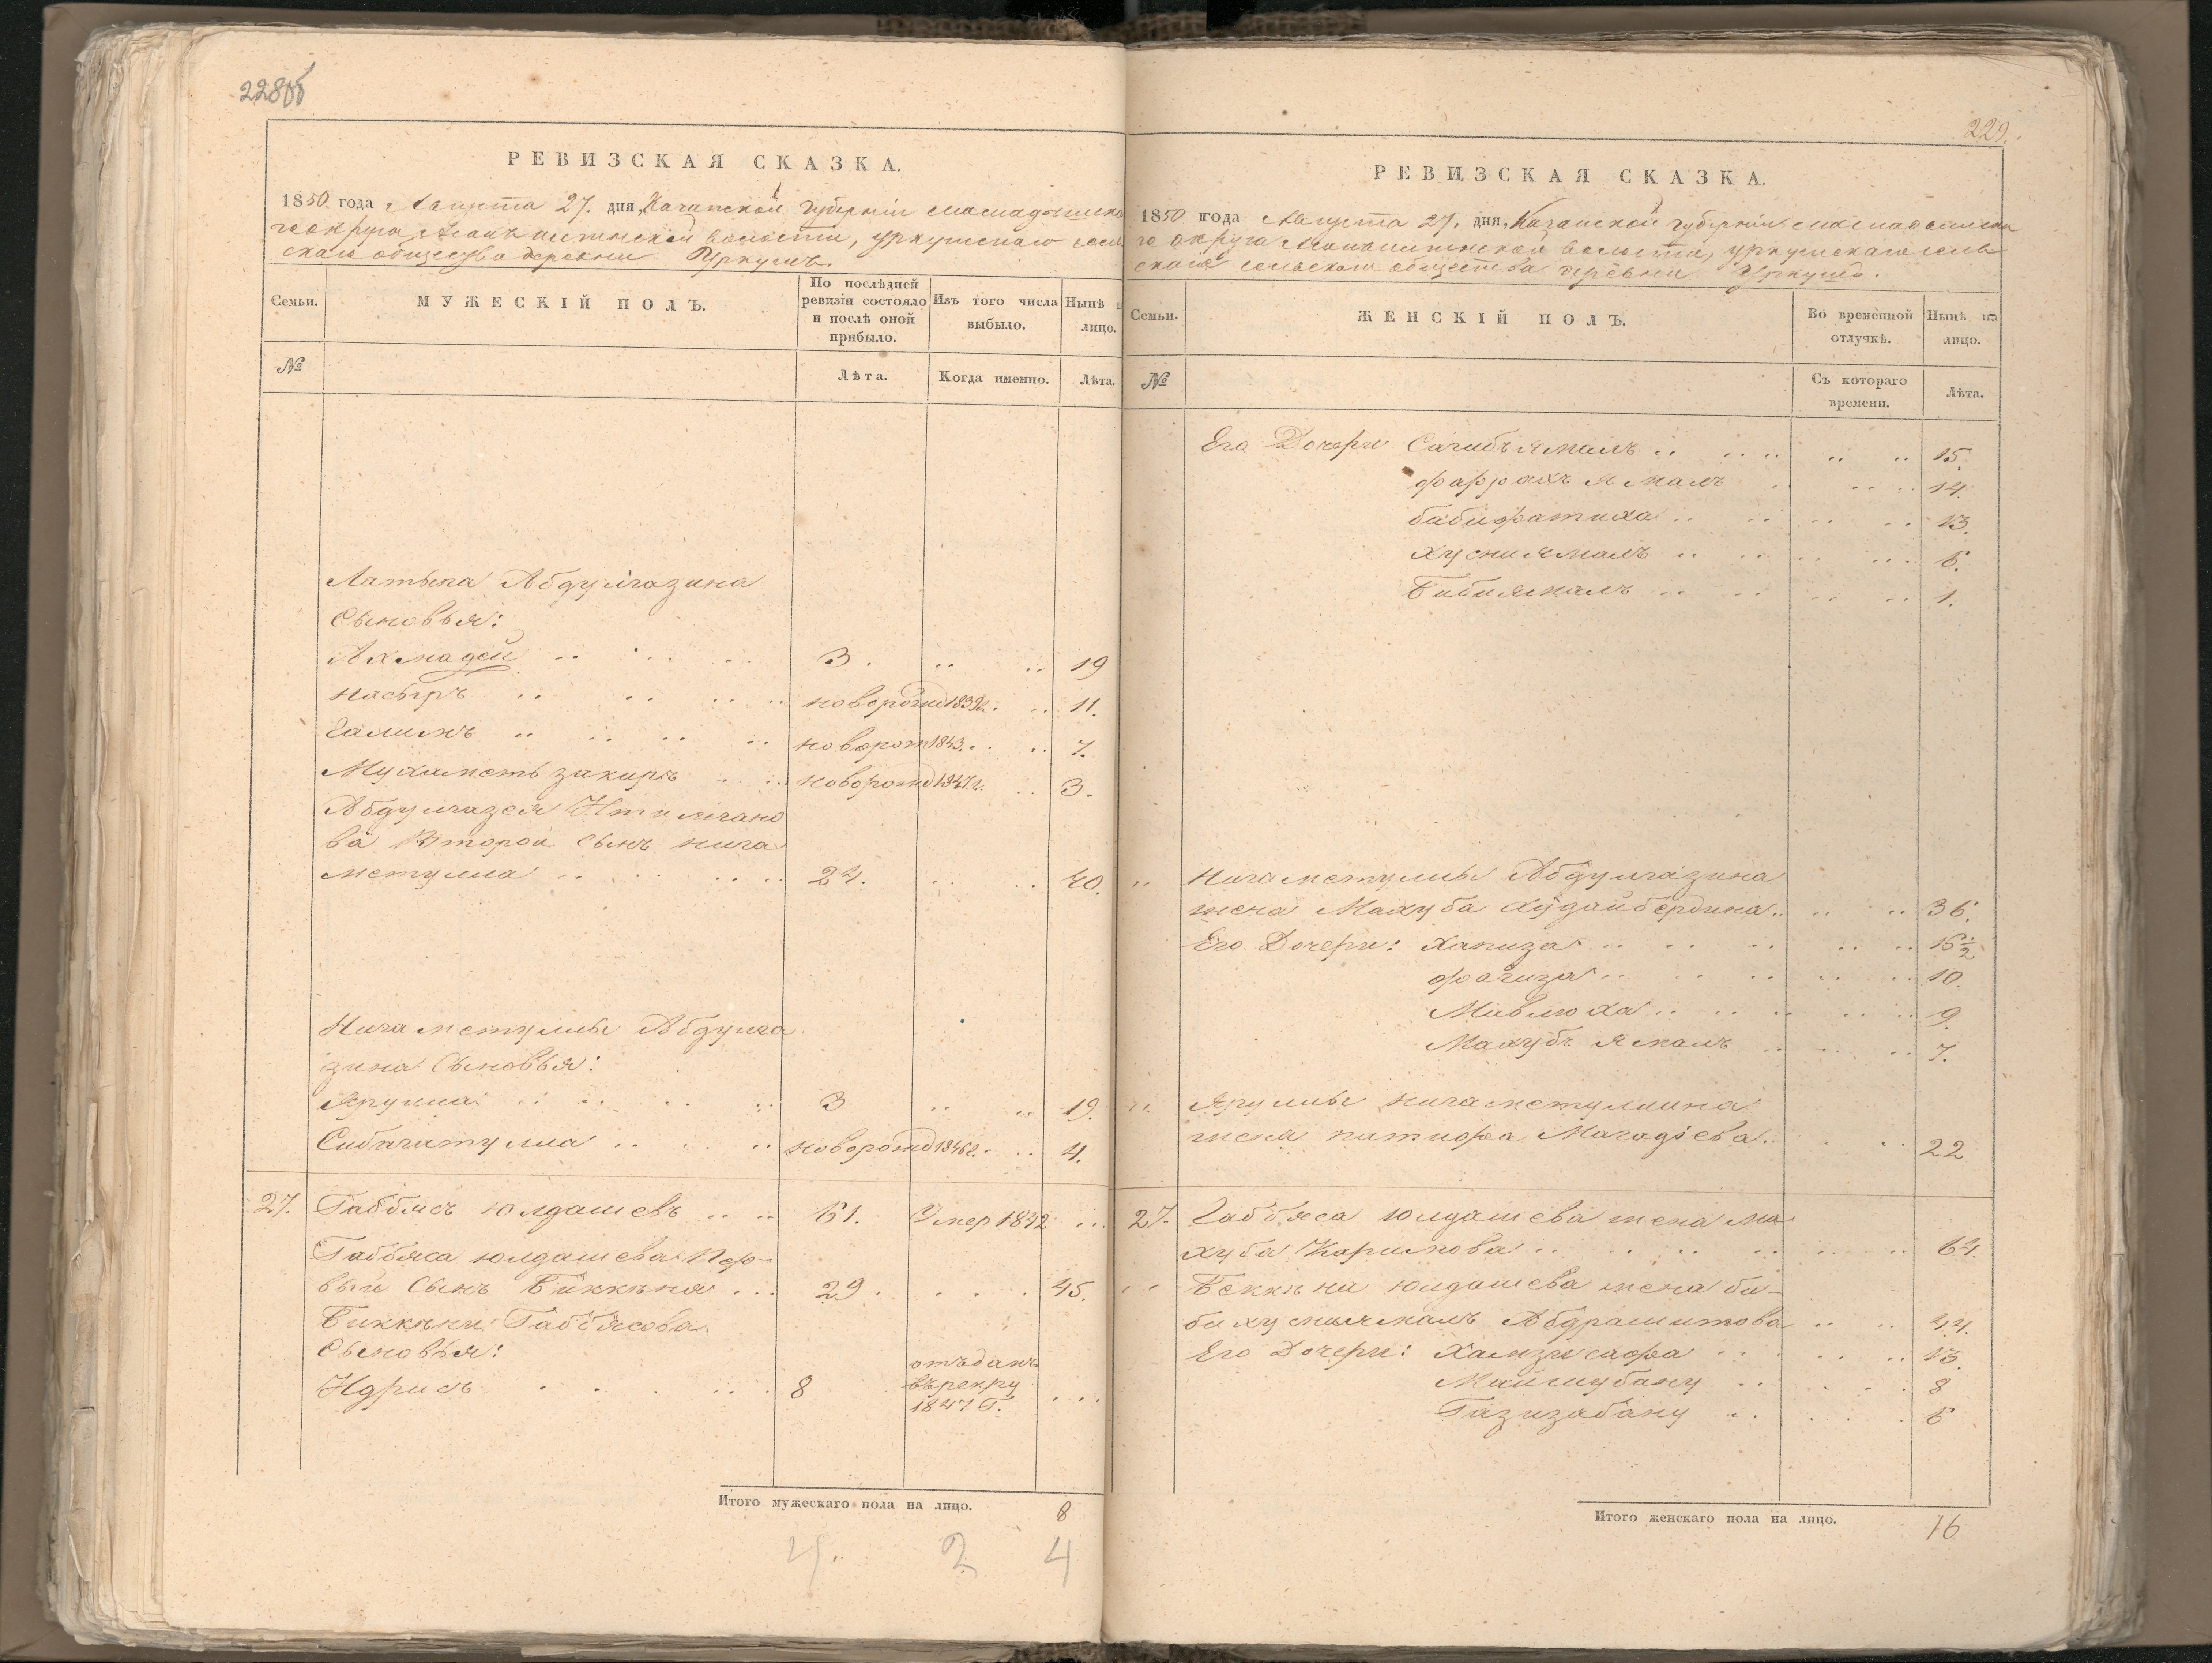 228об
РЕВИЗСКАЯ СКАЗКА.
1850 года Августа 27. дня, Казанской губерніи Мамадышска
го округа волости, уркушскаго сель
скаго общества деревни Уркушъ.
Семьи.
МУЖЕСКІЙ ПОЛЪ.
По послѣдней ревизіи состояло и послѣ оной прибыло.
Изъ того числа выбыло.
Нынѣ на лицо.
№
Лѣта.
Когда именно.
Лѣта.
Латыпа Абдулгазина
Сыновья:
Ахмадей .. .. .. 3. .. .. 19
Насыръ .. .. .. новорожд 1839г. .. 11.
Галимъ .. .. .. .. новорож 1843. .. 7.
Мухаметь закиръ .. .. новорожд 1847г. .. 3.
Абдулгазея Итимгано
ва Второй Сынъ нига
метулла .. .. .. 24. .. .. 40.
Нигаметуллы Абдулга
зина Сыновья:
Ярулла .. .. .. .. 3 .. .. 19.
Сибагатулла .. .. .. новорожд 1846г. .. 4.
27. Габбясъ Юлдашевъ .. .. 61. Умер 1842 ..
Габбяса юлдашева Пер-
вый Сынъ Биккѣня ... 29. .... 45.
Биккѣни Габбясова
Сыновья:
Идрисъ .... 8 отъданъ
въ рекру
1847 Г. ...
Итого мужескаго пола на лицо. 8
4. 2 4
229.
РЕВИЗСКАЯ СКАЗКА.
1850 года Августа 27. дня, Казанской губерніи Мамадышска
го округа волости, уркушскаго сель
скаго сельскаго общества деревни Уркушъ.
Семьи.
ЖЕНСКІЙ ПОЛЪ.
Во временной отлучкѣ.
Нынѣ на лицо.
№
Съ котораго времени.
Лѣта.
Его Дочери Сагибъ ямалъ .. .. .. .. 15.
фаррахъ ямалъ .. .. 14.
бибифатиха .. .. .. .. 13.
Хусниямалъ .. .. .. .. 6.
Бибиямалъ .. .. .. .. 1.
.. Нигаметуллы Абдулгазина
жена Махуба Худайбердина .. .. .. 36.
Его Дочери: Хапиза .. .. .. .. .. 16½
фагиза .. .. .. .. .. 10.
Мавлюха .. .. .. .. .. 9.
Махубъ ямалъ .. .. .. 7.
.. Яруллы нигаметуллина
жена Магадіева .. .. 22
27. Габбяса юлдашева жена Ма
хуба Каримова .. .. .. .. .. 64.
.. Беккѣни юлдашева жена би-
би хусныямалъ Абдрашитова .. .. 44.
Его Дочери: Хамзисафа .. .. .. 13.
Маймубану .. .. 8
Газизабану .. .. 6
Итого женскаго пола на лицо. 16